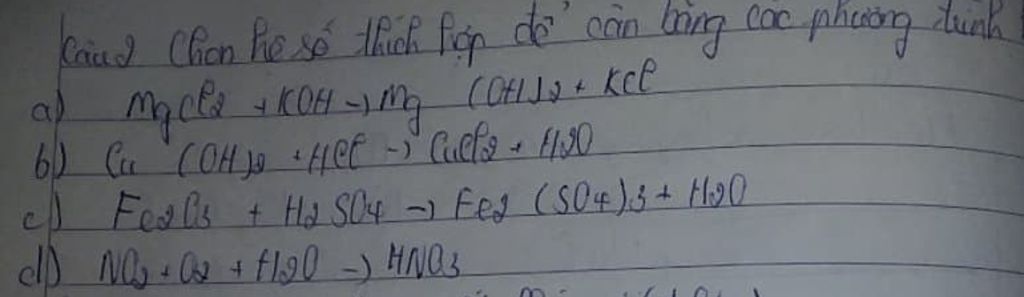 Câu 2 Chọn hệ số thích hợp để cân bằng các phương trình
a) MgCl2 + KOH → Mg (OH)2 + KCl
b) Cu (OH)2 + HCl → CuCl2 + H2O
c) Fe2O3 + H2SO4 → Fe2 (SO4)3 + H2O
d) NO2 + O2 + H2O → HNO3